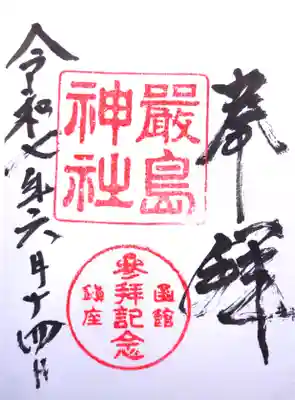 奉拝
厳島
神社
函館
參拜記念
鎮座
令和七年六月十四日